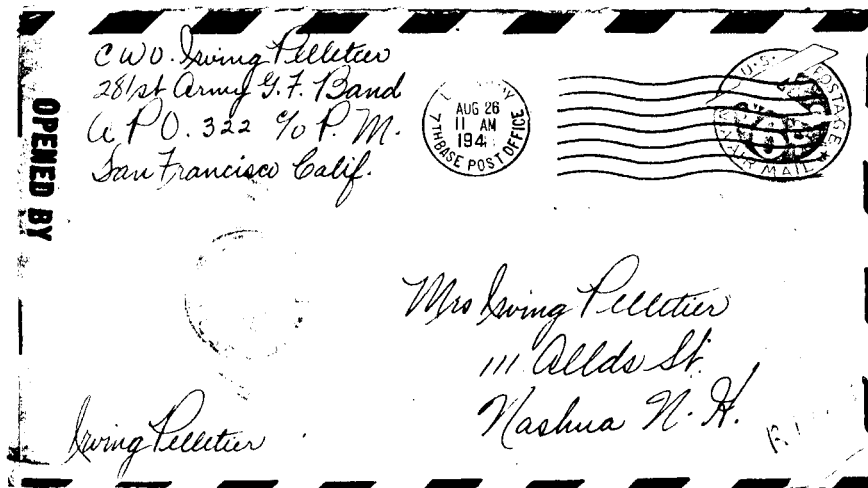 CWO. Irving Pelletier
281st Army G. F. Band
A P O. 322 c/o P. M.
San Francisco Calif.
OPENED BY
AUG 26
11 AM
194
7TH BASE POST OFFICE
U.S. POSTAGE
AIR MAIL
Mrs Irving Pelletier
111 Allds St.
Nashua N. H.
Irving Pelletier